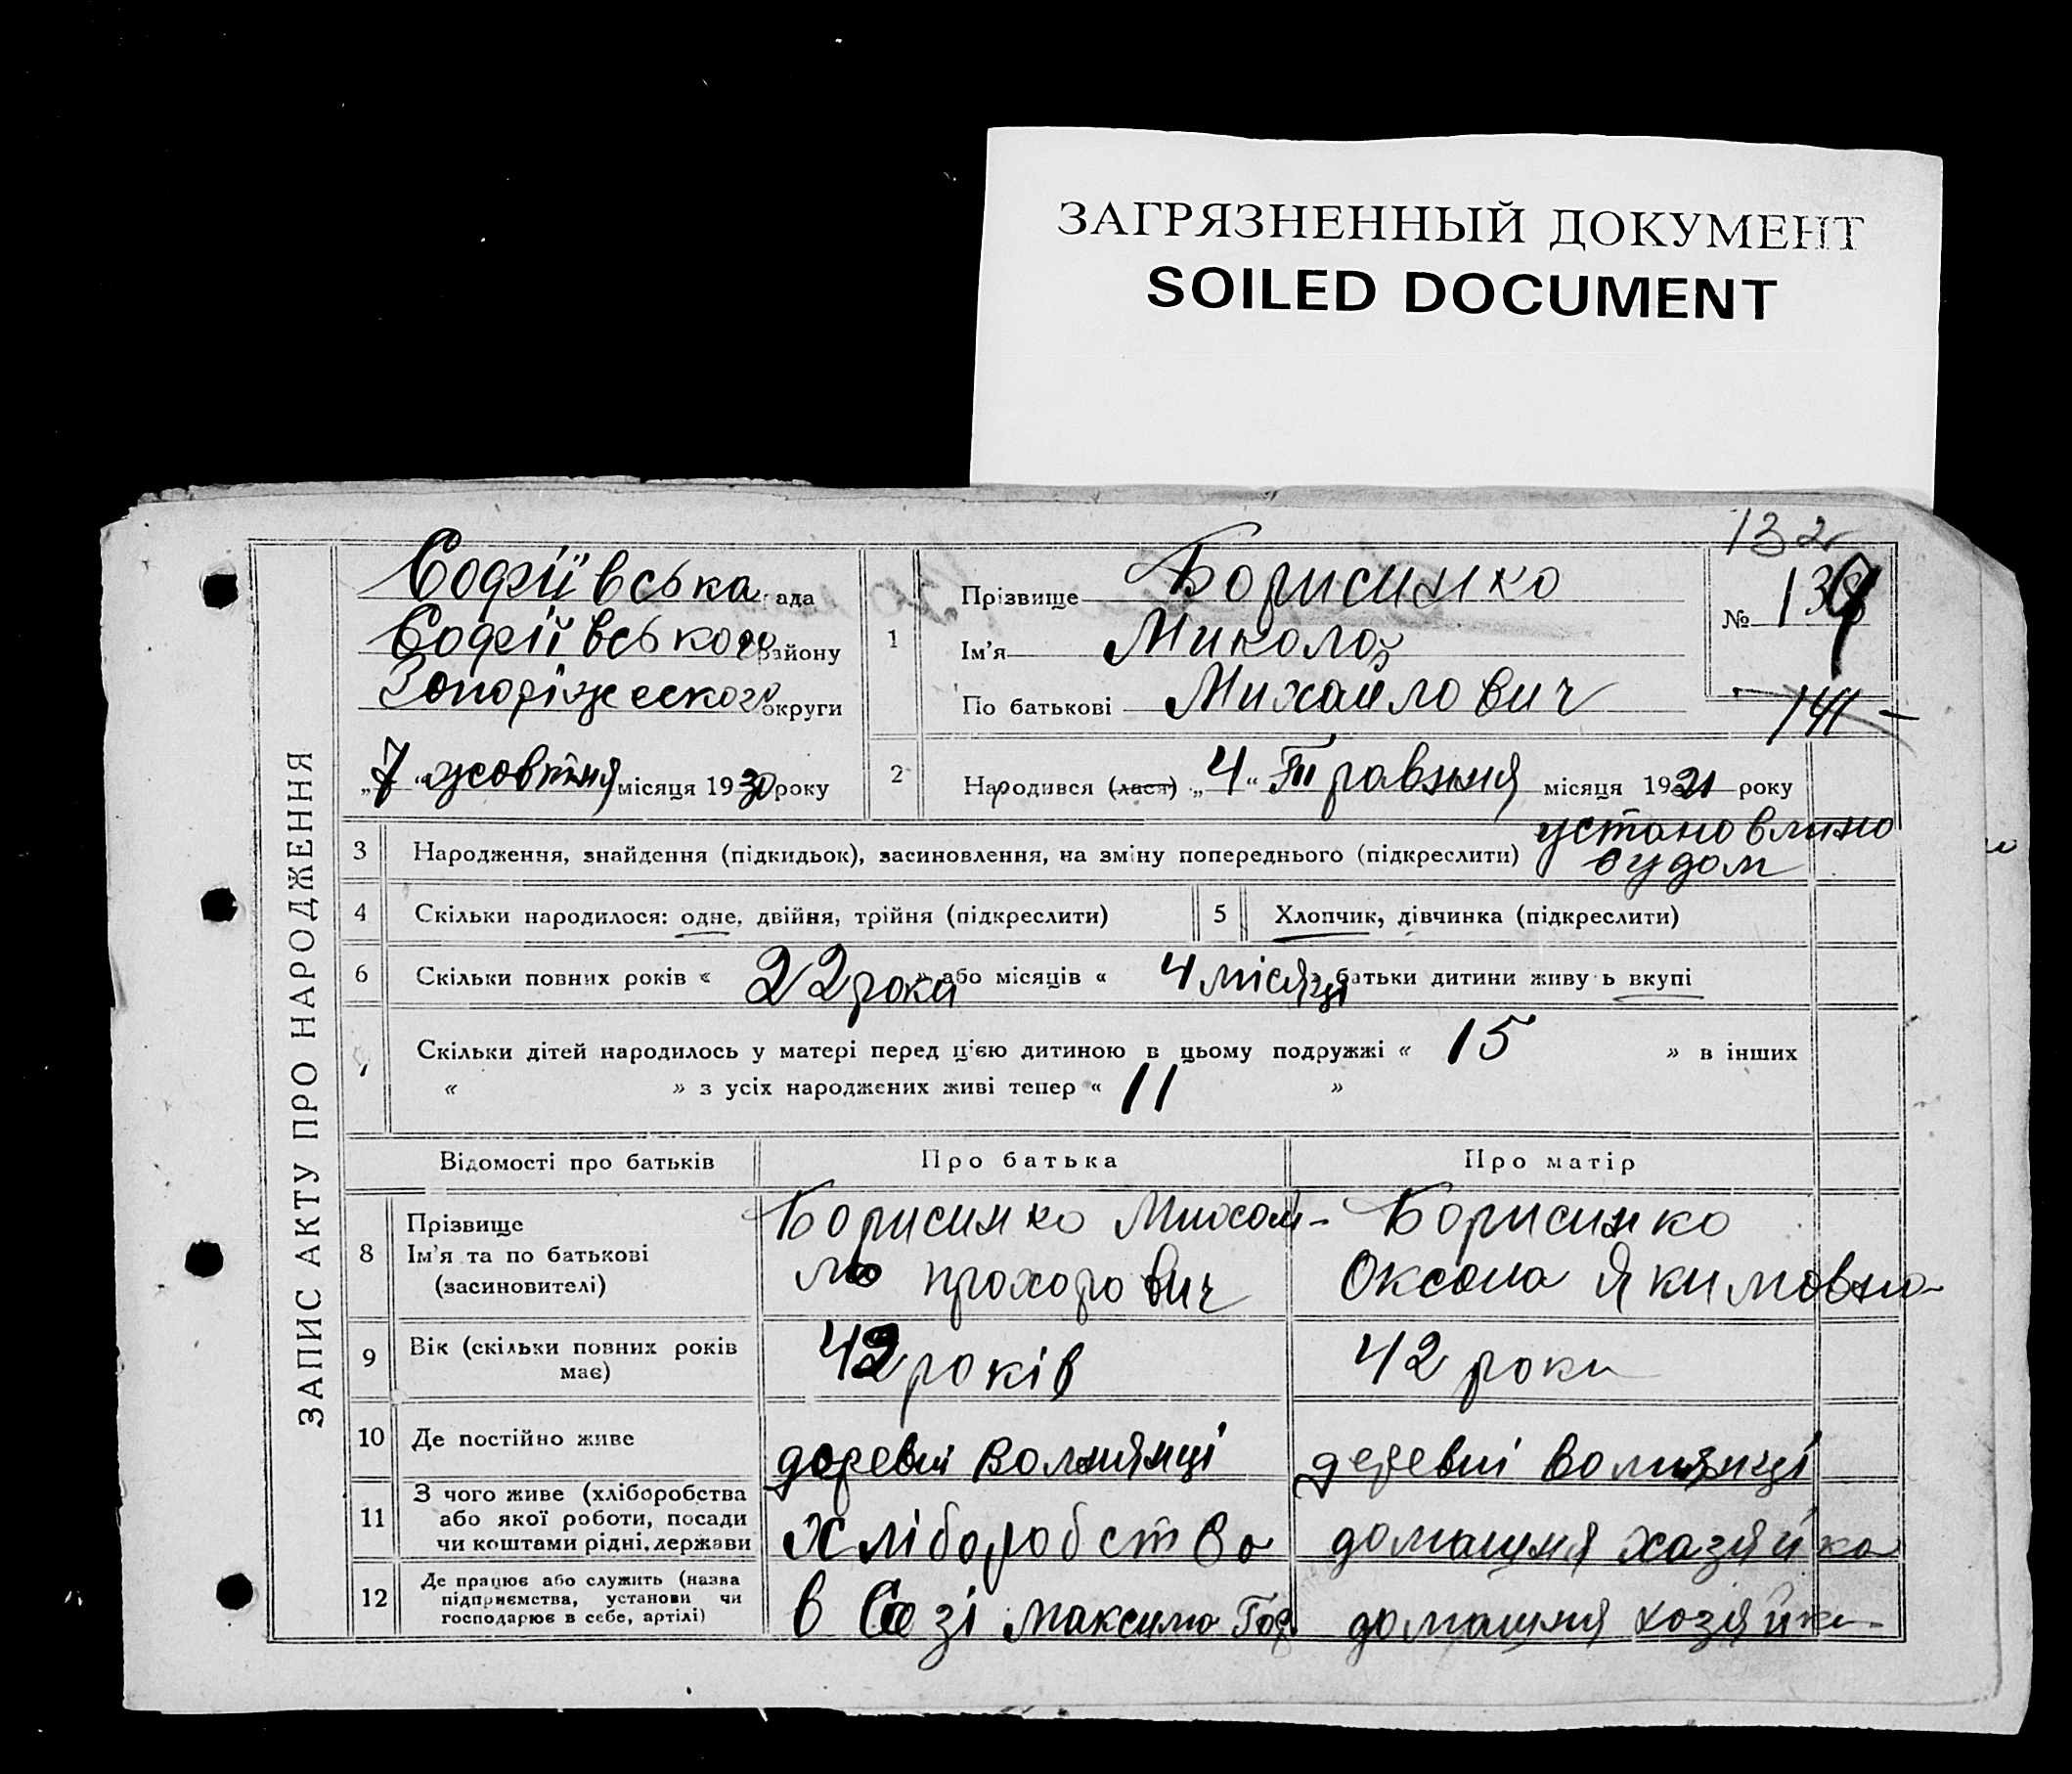 ЗАГРЯЗНЕННЫЙ ДОКУМЕНТ
SOILED DOCUMENT
ЗАПИС АКТУ ПРО НАРОДЖЕННЯ
132
Софіївська рада
Софіївського району
Запоріжского округи
„7“ жовтня місяця 1930 року
1
Прізвище Борисинко
Ім'я Миколай
По батькові Михайлович
№
141
2 Народився (лася) „4“ Травиня місяця 1921 року
3 Народження, знайдення (підкидьок), засиновлення, на зміну попереднього (підкреслити) установлино
судом
4 Скільки народилося: одне, двійня, трійня (підкреслити) 5 Хлопчик, дівчинка (підкреслити)
6 Скільки повних років « 22 роки » або місяців « 4 місяці » батьки дитини живуть вкупі
7 Скільки дітей народилось у матері перед цією дитиною в цьому подружжі « 15 » в інших
« » з усіх народжених живі тепер « 11 »
Відомості про батьків Про батька Про матір
8 Прізвище
Ім'я та по батькові
(засиновителі)
Борисинко Михай-
ло Прохорович
Борисинко
Оксана Якимовна
9 Вік (скільки повних років
має)
42 років
42 роки
10 Де постійно живе
деревні
деревні
11 З чого живе (хліборобства
або якої роботи, посади
чи коштами рідні, держави
Хліборобство
домашня хазяйка
12 Де працює або служить (назва
підприємства, установи чи
господарює в себе, артілі)
в Созі Максима Гор
домашня хозяйка